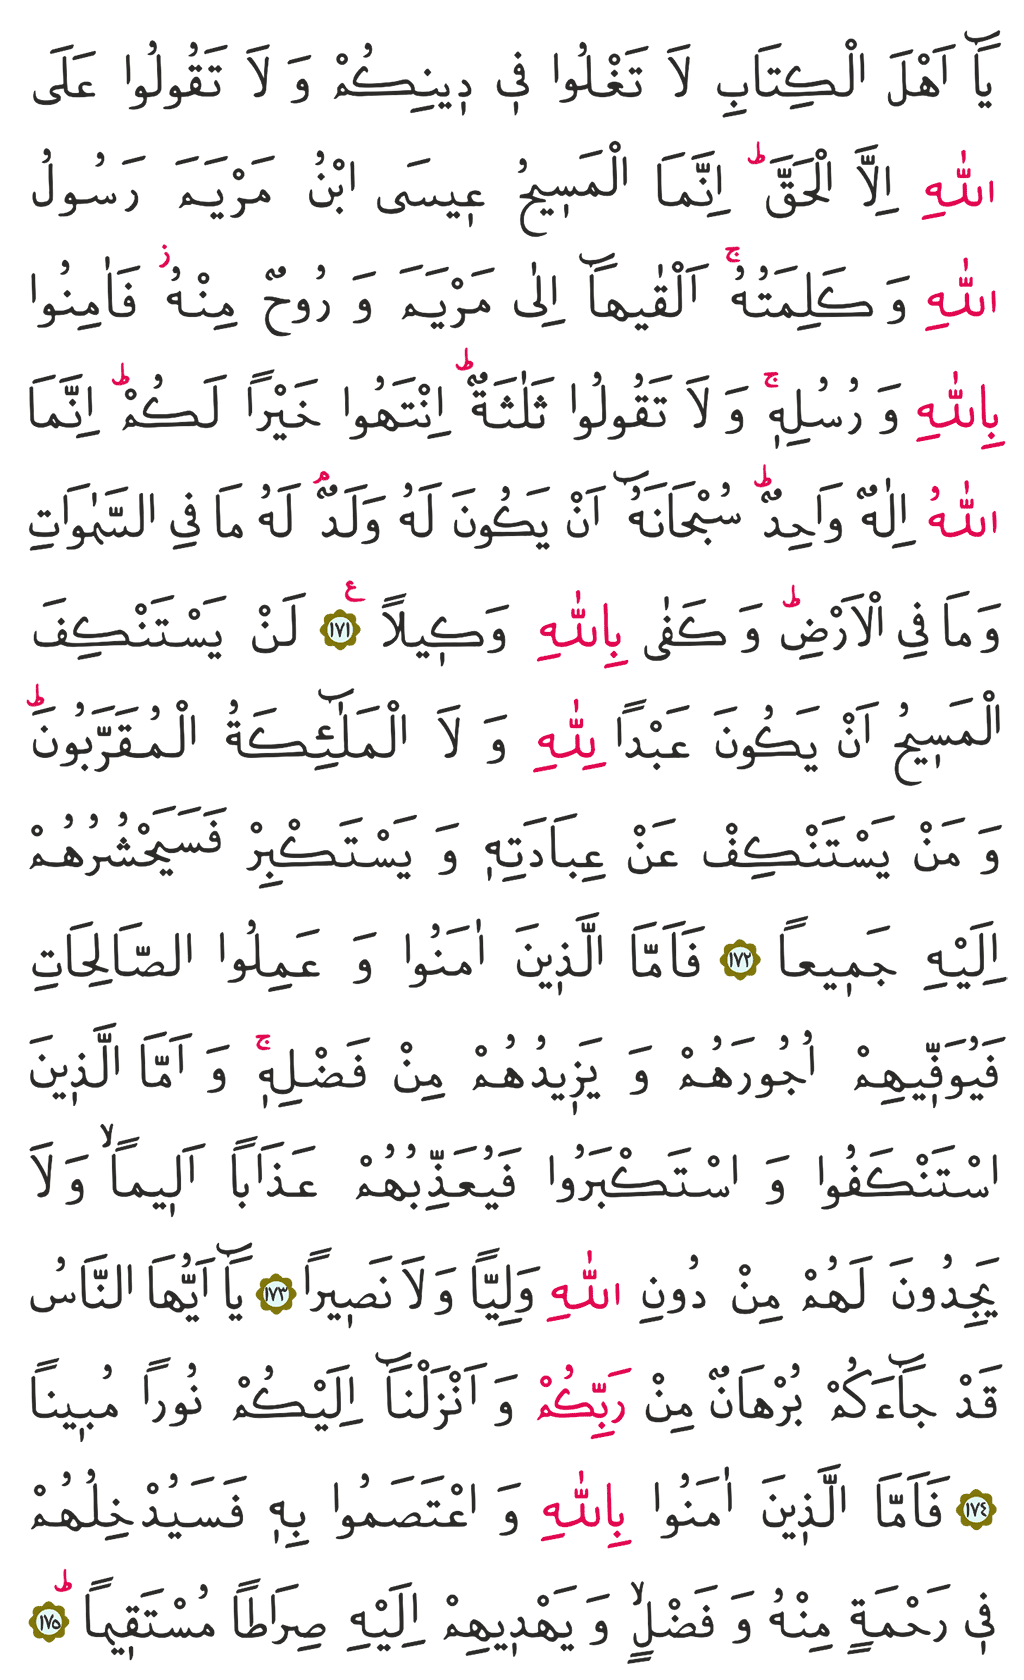 يَٓا اَهْلَ الْكِتَابِ لَا تَغْلُوا فٖي دٖينِكُمْ وَ لَا تَقُولُوا عَلَى
اللّٰهِ اِلَّا الْحَقَّؕ اِنَّمَا الْمَسٖيحُ عٖيسَى ابْنُ مَرْيَمَ رَسُولُ
اللّٰهِ وَ كَلِمَتُهُۚ اَلْقٰيهَٓا اِلٰى مَرْيَمَ وَ رُوحٌ مِنْهُؗ فَاٰمِنُوا
بِاللّٰهِ وَ رُسُلِهٖۚ وَ لَا تَقُولُوا ثَلٰثَةٌؕ اِنْتَهُوا خَيْراً لَكُمْؕ اِنَّمَا
اللّٰهُ اِلٰهٌ وَاحِدٌؕ سُبْحَانَهُٓ اَنْ يَكُونَ لَهُ وَلَدٌۢ لَهُ مَا فِي السَّمٰوَاتِ
وَ مَا فِي الْاَرْضِؕ وَ كَفٰى بِاللّٰهِ وَكٖيلاً ࣖ ١٧١ لَنْ يَسْتَنْكِفَ
الْمَسٖيحُ اَنْ يَكُونَ عَبْداً لِلّٰهِ وَ لَا الْمَلٰٓئِكَةُ الْمُقَرَّبُونَؕ
وَ مَنْ يَسْتَنْكِفْ عَنْ عِبَادَتِهٖ وَ يَسْتَكْبِرْ فَسَيَحْشُرُهُمْ
اِلَيْهِ جَمٖيعاً ١٧٢ فَاَمَّا الَّذٖينَ اٰمَنُوا وَ عَمِلُوا الصَّالِحَاتِ
فَيُوَفّٖيهِمْ اُجُورَهُمْ وَ يَزٖيدُهُمْ مِنْ فَضْلِهٖۚ وَ اَمَّا الَّذٖينَ
اسْتَنْكَفُوا وَ اسْتَكْبَرُوا فَيُعَذِّبُهُمْ عَذَاباً اَلٖيماًۙ وَ لَا
يَجِدُونَ لَهُمْ مِنْ دُونِ اللّٰهِ وَلِيًّا وَ لَا نَصٖيراً ١٧٣ يَٓا اَيُّهَا النَّاسُ
قَدْ جَٓاءَكُمْ بُرْهَانٌ مِنْ رَبِّكُمْ وَ اَنْزَلْنَٓا اِلَيْكُمْ نُوراً مُبٖيناً
١٧٤ فَاَمَّا الَّذٖينَ اٰمَنُوا بِاللّٰهِ وَ اعْتَصَمُوا بِهٖ فَسَيُدْخِلُهُمْ
فٖي رَحْمَةٍ مِنْهُ وَ فَضْلٍۙ وَ يَهْدٖيهِمْ اِلَيْهِ صِرَاطاً مُسْتَقٖيماًؕ ١٧٥